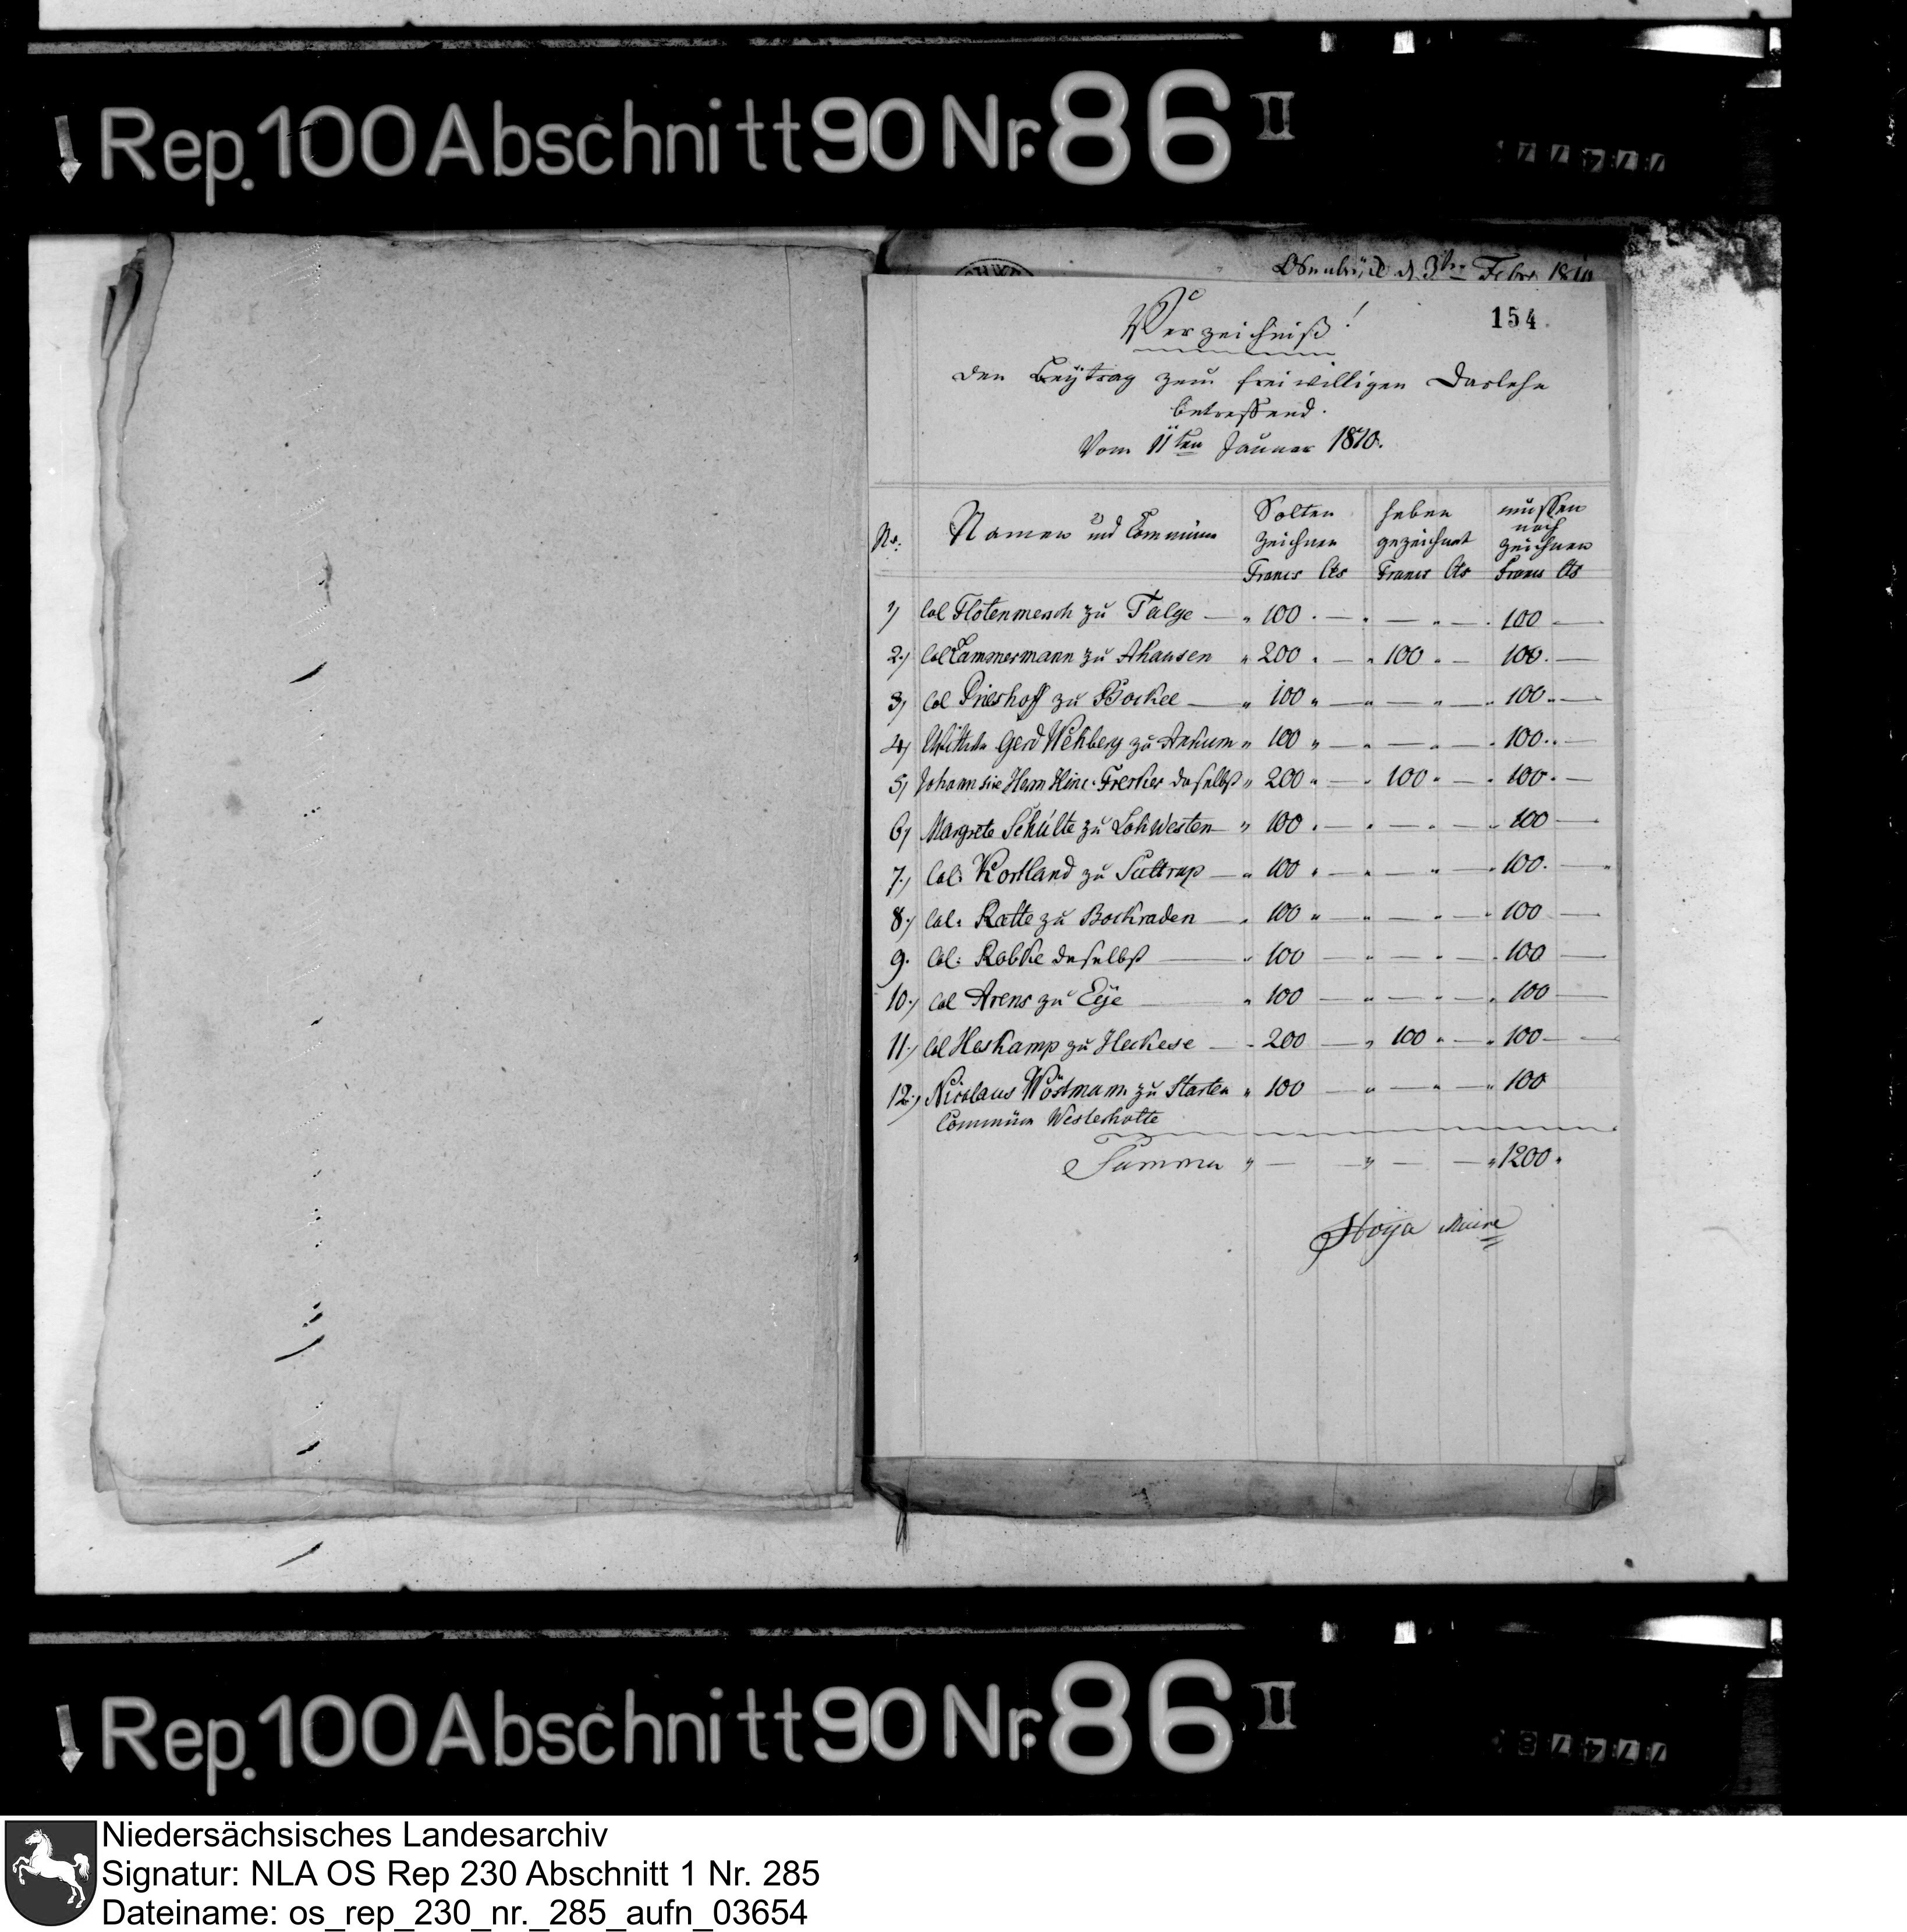 Rep. 100 Abschnitt 90 Nr. 86 II
Osnabrück d. 3ten Febr. 1810
154.
Verzeichniß!
den Beÿtrag zum freiwilligen Darlehn
betreffend.
Vom 11ten Januar 1810.
No. Namen und Commün Solten zeichnen Francs Cts haben gezeichnet Francs Cts müssen noch zeichnen Francs Cts
1) Col Flotenmesch zu Talge — " 100 . — " — " — . 100 —
2.) Col Lammermann zu Ahausen " 200 " — " 100 " — 100. —
3) Col Prieshoff zu Bockel — " 100 " — " — " — " 100 " —
4) Gerd Wehberg zu Ankum " 100 " — " — " — " 100 " —
5) Herm Hinr. Frerker daselbst " 200 " — " 100 " — " 100 " —
6) Margrete Schulte zu Lohwesten " 100 . — " — " — " 100 —
7.) Col: Kortland zu Suttrup — " 100 " — " — " — " 100. —
8.) Col: Ratte zu Bockraden — " 100 " — " — " — " 100 —
9. Col: Robke daselbst — " 100 — " — " — " 100 —
10.) Col Arens zu Eÿe — " 100 — " — " — " 100 —
11.) Col Heskamp zu Heckese — " 200 — " 100 " — " 100 —
12.) Nicolaus Wöstmann zu Starten " 100 — " — " — " 100
Commün Westerholte
Summa " — — " — — " 1200 "
Hoya Maire
Rep. 100 Abschnitt 90 Nr. 86 II
Niedersächsisches Landesarchiv
Signatur: NLA OS Rep 230 Abschnitt 1 Nr. 285
Dateiname: os_rep_230_nr._285_aufn_03654